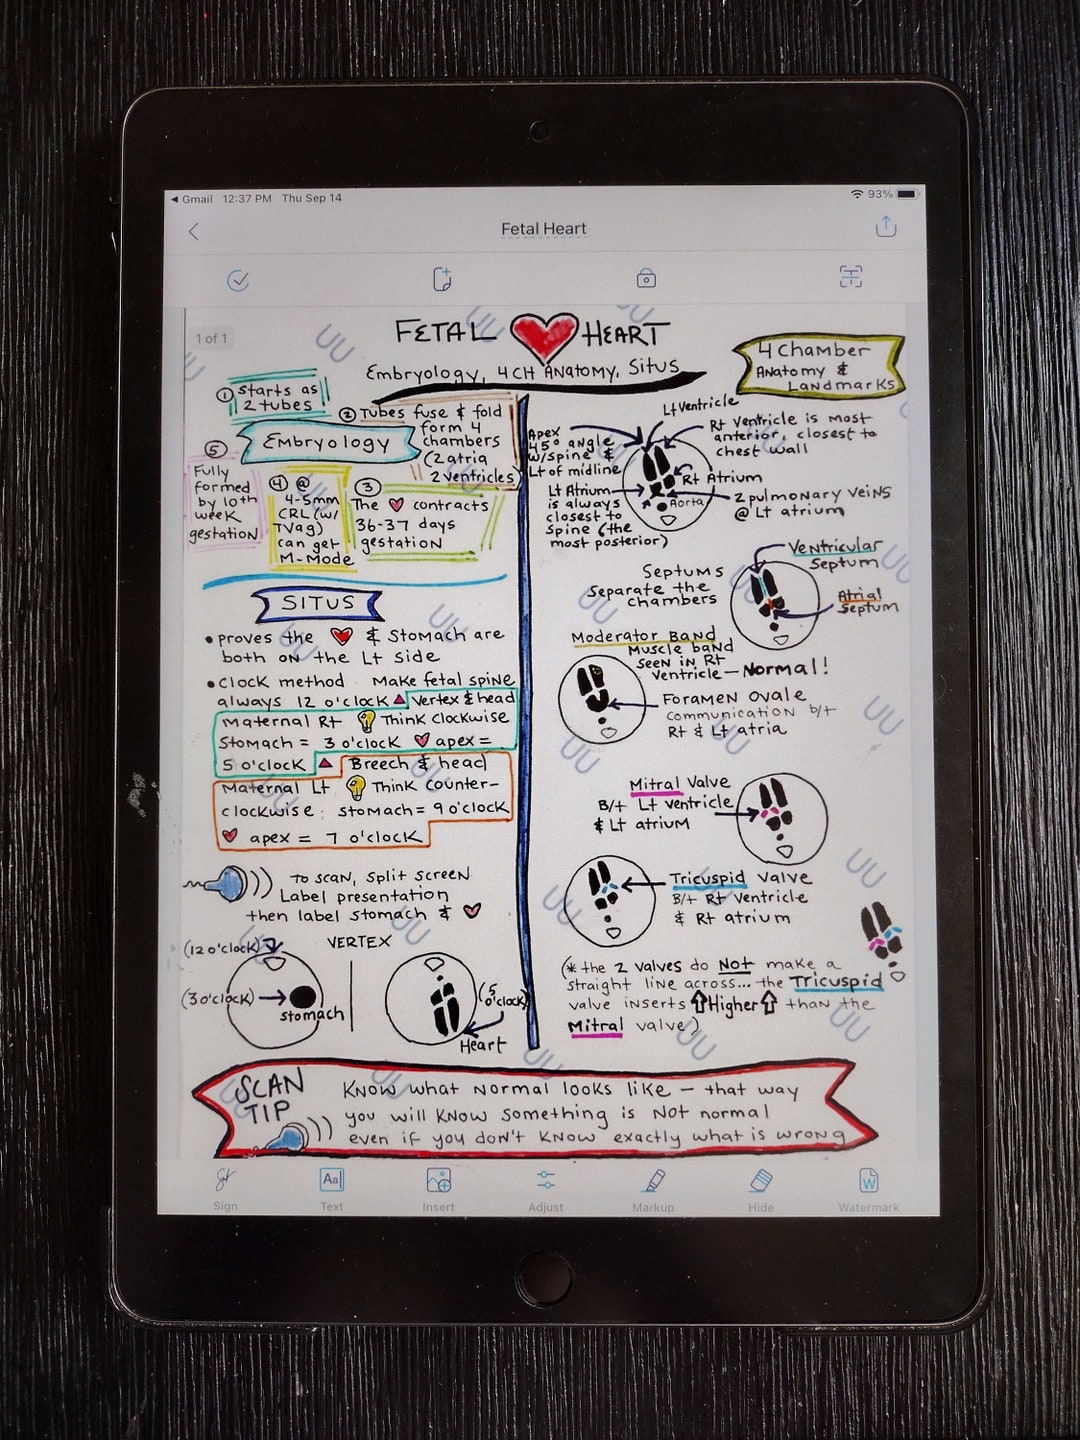 Gmail 12:37 PM Thu Sep 14
93%
Fetal Heart
1 of 1
FETAL HEART
Embryology, 4CH ANATOMY, SITUS
4 Chamber
ANATOMY &
LANDMARKS
① Starts as
2 tubes
② Tubes fuse & fold
form 4
chambers
(2 atria
2 ventricles)
EMBRYOLOGY
⑤
Fully
formed
by 10th
week
gestation
④ @
4-5mm
CRL (w/
TVag)
can get
M-Mode
③
The ♥ contracts
36-37 days
gestation
SITUS
• proves the ♥ & Stomach are
both on the Lt side
• Clock method Make fetal spine
always 12 o'clock ▲ Vertex & head
Maternal Rt Think clockwise
Stomach = 3 o'clock ♥ apex =
5 o'clock ▲ Breech & head
Maternal Lt Think counter-
clockwise: stomach = 9 o'clock
♥ apex = 7 o'clock
TO SCAN, Split SCREEN
Label presentation
then label stomach & ♥
VERTEX
(12 o'clock)
(3 o'clock)
stomach
(5
o'clock)
Heart
Lt Ventricle
Apex
45° angle
w/spine &
Lt of midline
Rt Ventricle is most
anterior, closest to
chest wall
Rt Atrium
Lt Atrium
is always
closest to
spine (the
most posterior)
Aorta
2 pulmonary veins
@ Lt atrium
Septums
Separate the
chambers
Ventricular
Septum
Atrial
Septum
Moderator Band
Muscle band
seen in Rt
Ventricle — Normal!
Foramen Ovale
communication b/t
Rt & Lt atria
Mitral Valve
B/t Lt ventricle
& Lt atrium
Tricuspid Valve
B/t Rt Ventricle
& Rt atrium
(* the 2 valves do NOT make a
straight line across... the Tricuspid
valve inserts ⇧Higher⇧ than the
Mitral valve)
SCAN
TIP
Know what normal looks like — that way
you will know something is not normal
even if you don't know exactly what is wrong
Sign Text Insert Adjust Markup Hide Watermark
UU